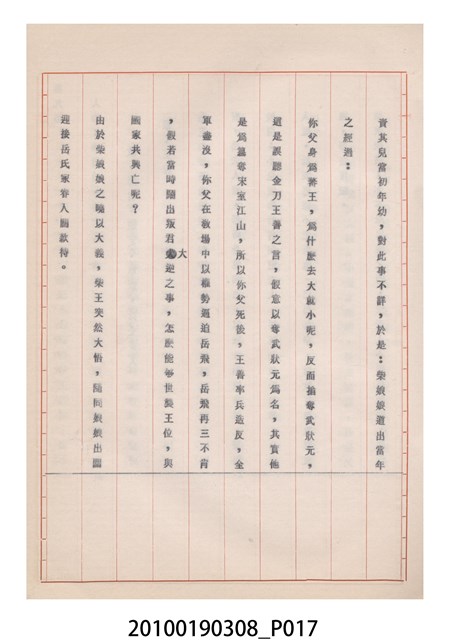 責其兒當初年幼，對此事不詳，於是：柴娘娘道出當年
之經過：
你父身爲蕃王，爲什麽去大就小呢，反而搶奪武狀元，
這是誤聽金刀王善之言，假意以奪武狀元爲名，其實他
是爲篡奪宋室江山，所以你父死後，王善率兵造反，全
軍盡沒，你父在教場中以權勢逼迫岳飛，岳飛再三不肯
，假若當時鬧出叛君大逆之事，怎麽能够世襲王位，與
國家共興亡呢？
由於柴娘娘之曉以大義，柴王突然大悟，隨同娘娘出關
迎接岳氏家眷入關款待。
20100190308_P017